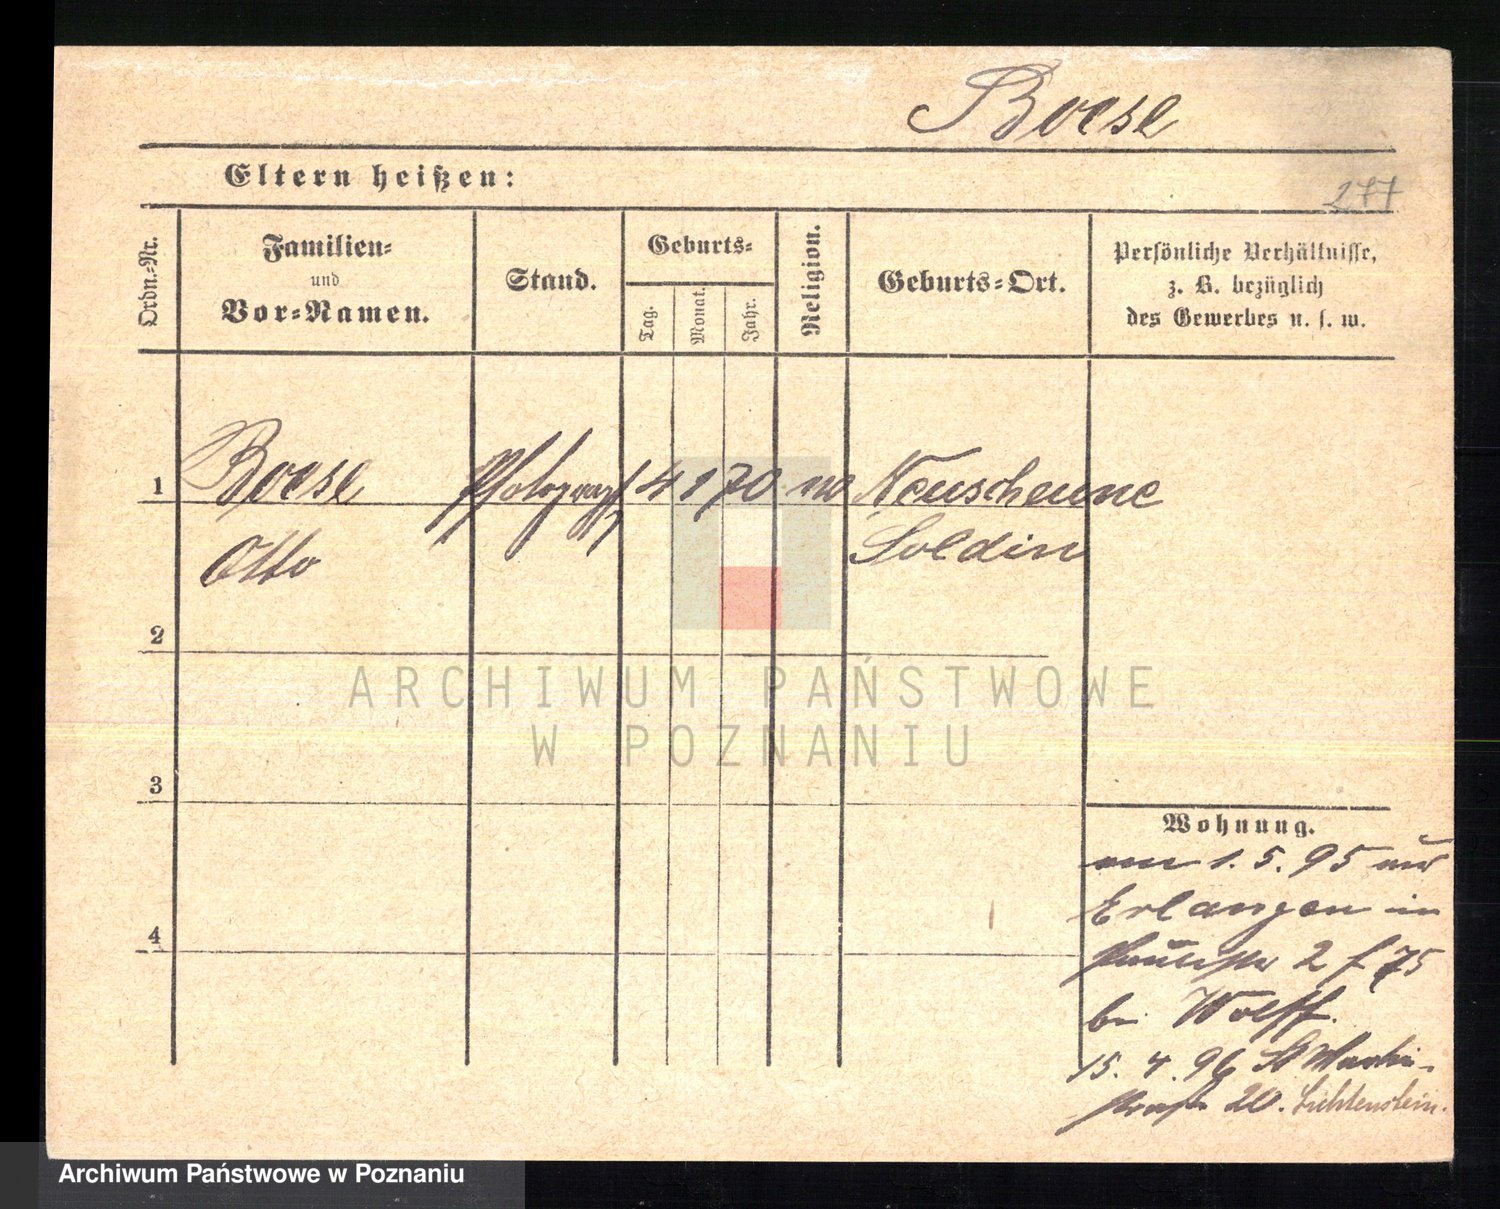 Boese
Eltern heißen:
277
Ordn.-Nr.
Familien-
und
Vor-Namen.
Stand.
Geburts-
Tag.
Monat.
Jahr.
Religion.
Geburts-Ort.
Persönliche Verhältnisse,
z. B. bezüglich
des Gewerbes u. s. w.
1 Boese Photograph 4 1 70 Neuscheune
Otto Soldin
2
3
4
Wohnung.
1. 5. 95 aus
Erlangen in
2 f 75
bei Wolff.
15. 4. 96 St Martin-
straße 20. Lichtenstein.
ARCHIWUM PAŃSTWOWE
W POZNANIU
Archiwum Państwowe w Poznaniu